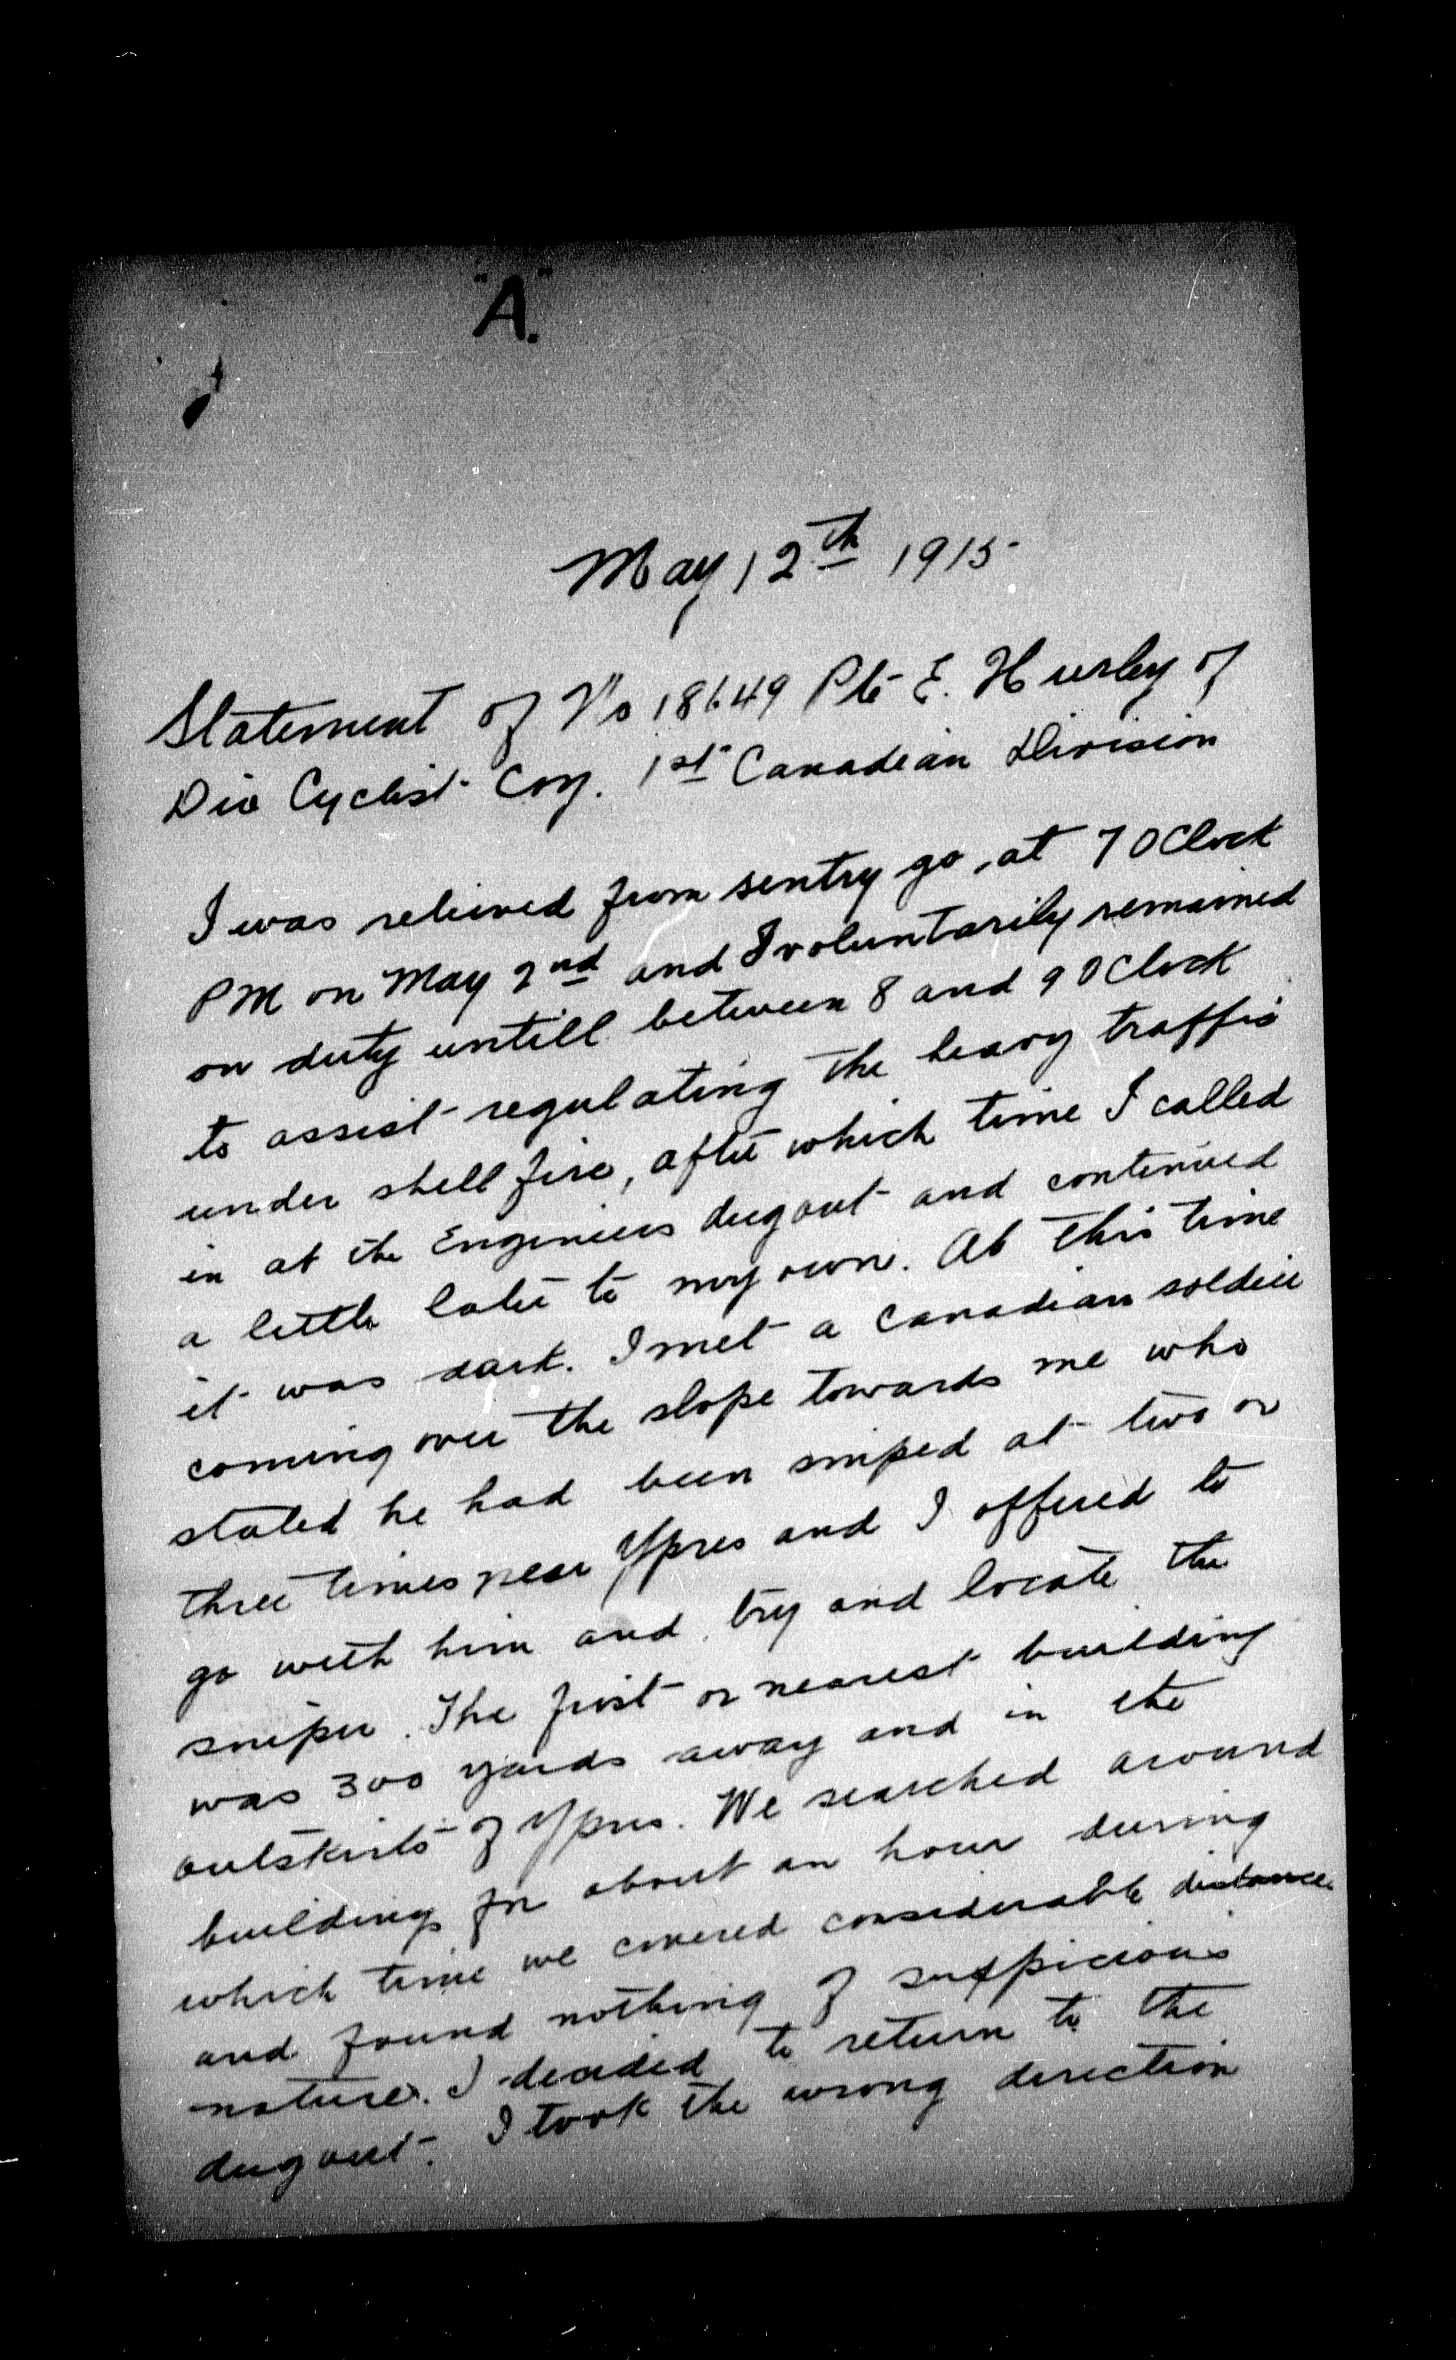 "A."
May 12th 1915
Statement of No 18649 Pte E. Hurley of
Div Cyclist Coy. 1st Canadian Division
I was relieved from sentry go, at 7 OClock
PM on May 2nd and I voluntarily remained
on duty untill between 8 and 9 OClock
to assist regulating the heavy traffic
under shell fire, after which time I called
in at the Engineers dugout and continued
a little later to my own. At this time
it was dark. I met a Canadian soldier
coming over the slope towards me who
stated he had been sniped at two or
three times near Ypres and I offered to
go with him and try and locate the
sniper. The first or nearest building
was 300 yards away and in the
outskirts of Ypres. We searched around
buildings for about an hour during
which time we covered considerable distance
and found nothing of suspicious
nature. I decided to return to the
dugout. I took the wrong direction